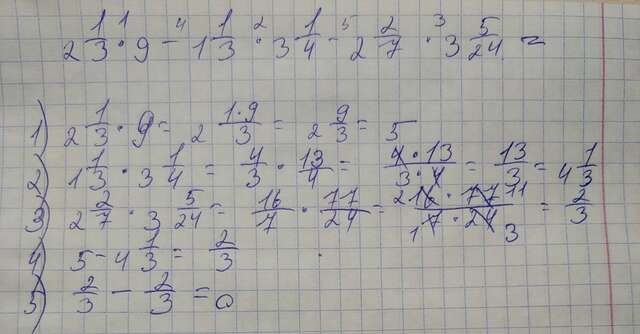 2 1/3 ·¹ 9 −⁴ 1 1/3 ·² 3 1/4 −⁵ 2 2/7 ·³ 3 5/24 =
1) 2 1/3 · 9 = 2 1·9/3 = 2 9/3 = 5
2) 1 1/3 · 3 1/4 = 4/3 · 13/4 = 4·13/3·4 = 13/3 = 4 1/3
3) 2 2/7 · 3 5/24 = 16/7 · 77/24 = 2 16 · 77 11/1 7 · 24 3 = 2/3
4) 5 − 4 1/3 = 2/3
5) 2/3 − 2/3 = 0